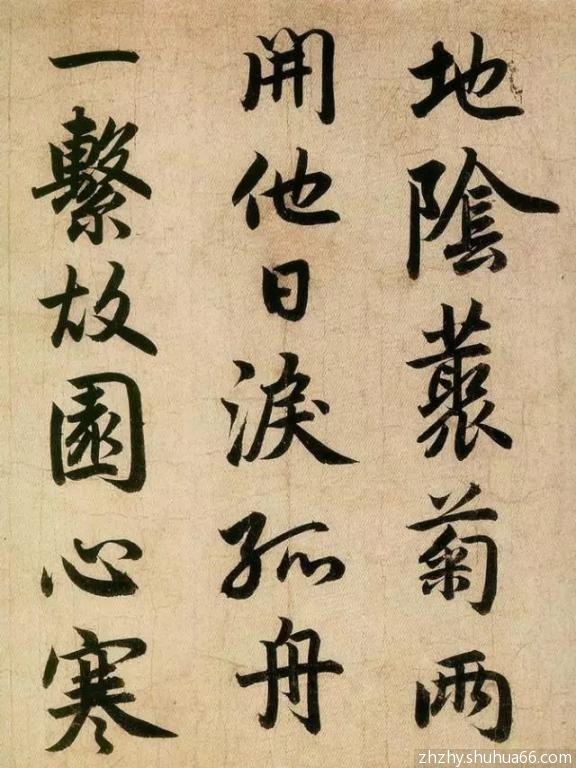 地陰藂菊兩
開他日淚孤舟
一繫故園心寒
zhzhy.shuhua66.com